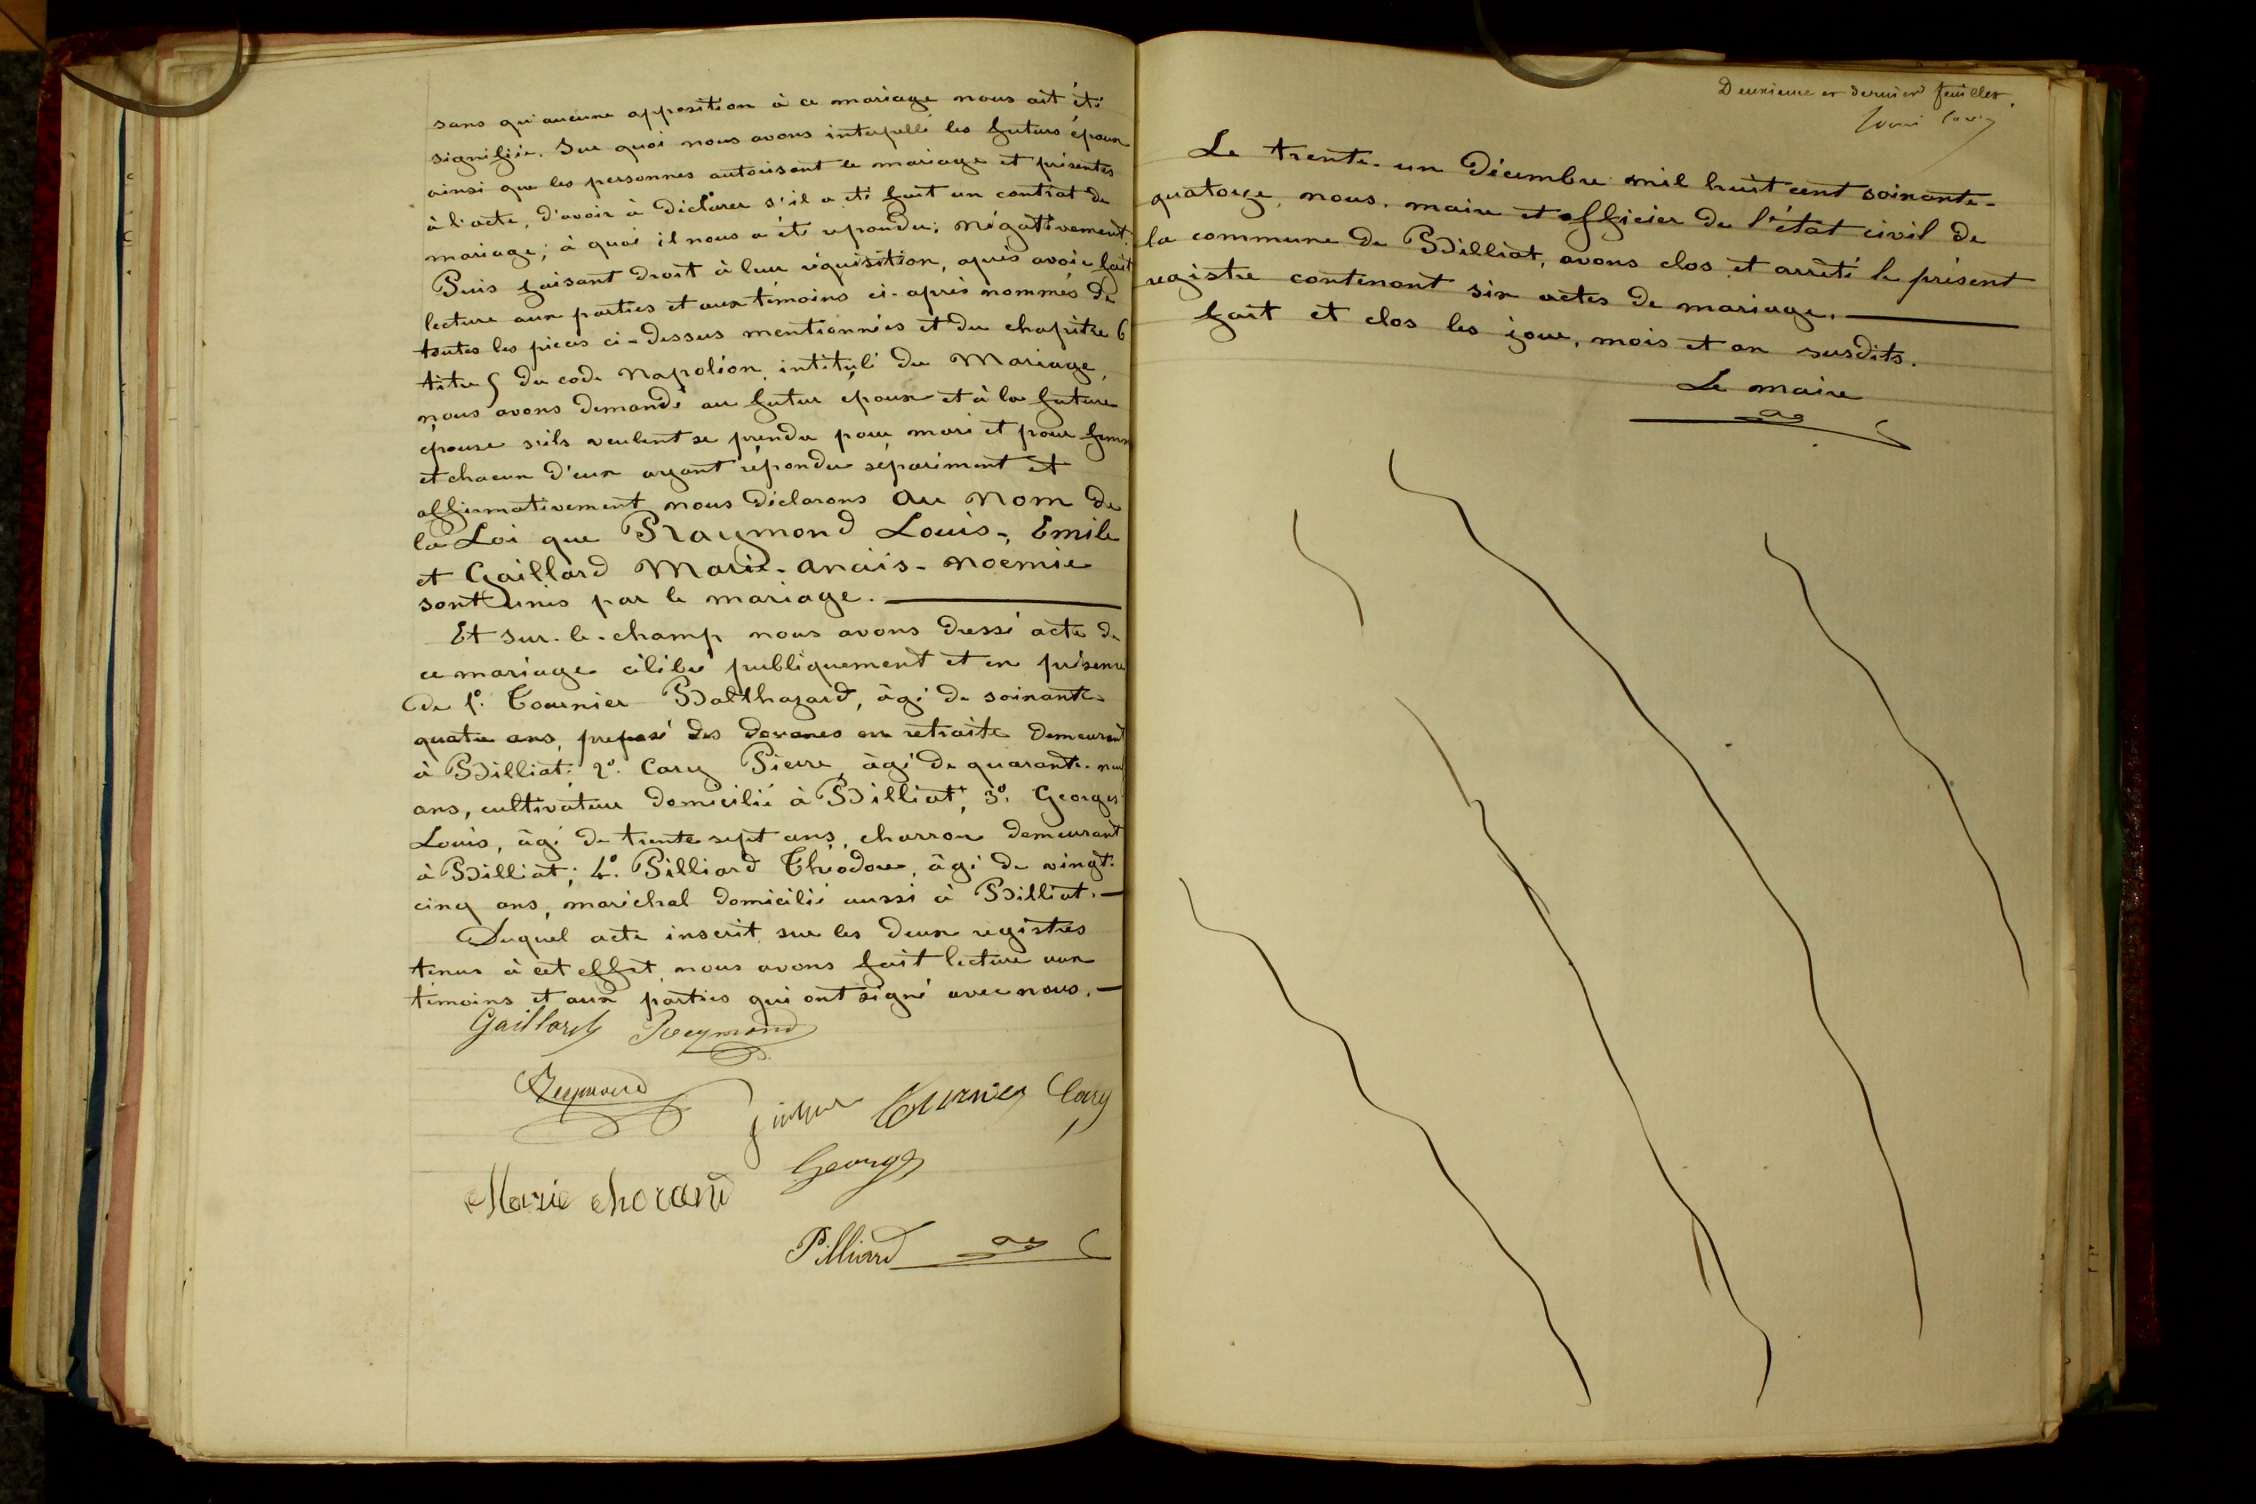 sans qu'aucune opposition à ce mariage nous ait été
signifiée. Sur quoi nous avons interpellé les futurs époux
ainsi que les personnes autorisant le mariage et présentes
à l'acte, d'avoir à déclarer s'il a été fait un contrat de
mariage; à quoi il nous a été repondu; négativement.
Puis faisant droit à leur réquisition, après avoir fait
lecture aux parties et aux témoins ci-après nommés de
toutes les pieces ci-dessus mentionnées et du chapitre 6
titre 5 du code Napoléon, intitulé du Mariage,
nous avons demandé au futur époux et à la future
épouse s'ils veulent se prendre pour mari et pour femme
et chacun d'eux ayant répondu séparément et
affirmativement nous déclarons au nom de
la Loi que Raymond Louis-, Emile
et Gaillard Marie-Anaïs-Noemie
sont unis par le mariage.
Et sur-le-champ nous avons dressé acte de
ce mariage célébré publiquement et en présence
de 1° Tournier Balthazard, âgé de soixante-
quatre ans, préposé des douanes en retraite demeurant
à Billiat; 2°. Cary Pierre, âgé de quarante-neuf
ans, cultivateur domicilié à Billiat; 3°. Georges
Louis, âgé de trente sept ans, charron demeurant
à Billiat; 4°. Pilliard Théodore, âgé de vingt-
cinq ans, maréchal domicilié aussi à Billiat.
Duquel acte inscrit sur les deux registres
tenus à cet effet, nous avons fait lecture aux
témoins et aux parties qui ont signé avec nous.
Gaillard Reymond
Reymond Tournier Cary
Georges
Marie Morand
Pilliard
Deuxieme et dernier feuillet.
Le trente-un Décembre mil huit cent soixante-
quatorze, nous, maire et officier de l'état civil de
la commune de Billiat, avons clos et arrêté le présent
registre contenant six actes de mariage.
fait et clos les jour, mois et an susdits.
Le maire